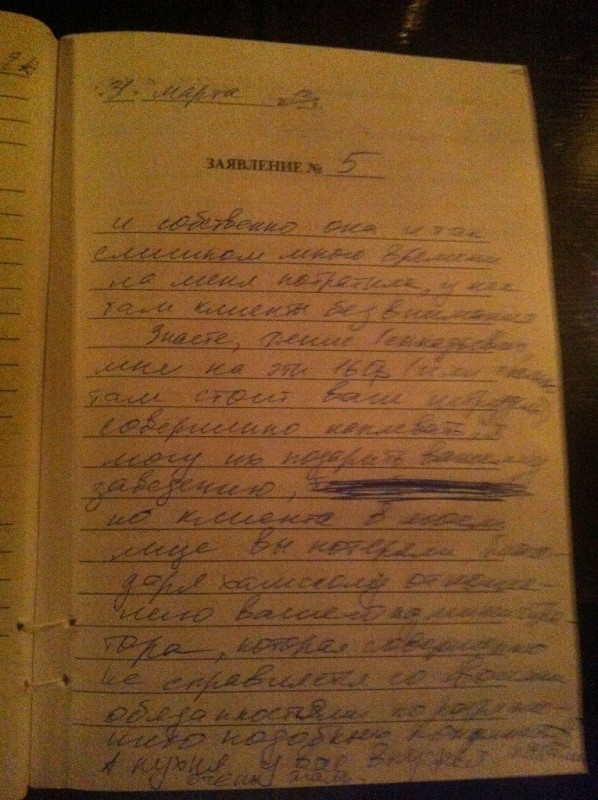 марта
ЗАЯВЛЕНИЕ № 5
и собственно она и так
слишком много времени
на меня потратила, у нее
там клиенты без внимания
Знаете, Денис Геннадьевич,
мне на эти 160р (или сколько
там стоит ваш
совершенно наплевать, я
могу их подарить вашему
заведению,
но клиента в моем
лице вы потеряли, благо-
даря хамскому отноше-
нию вашего администра-
тора, которая совершенно
не справляется со своими
обязанностями по разреше-
нию подобных
А кухня у вас вкусная